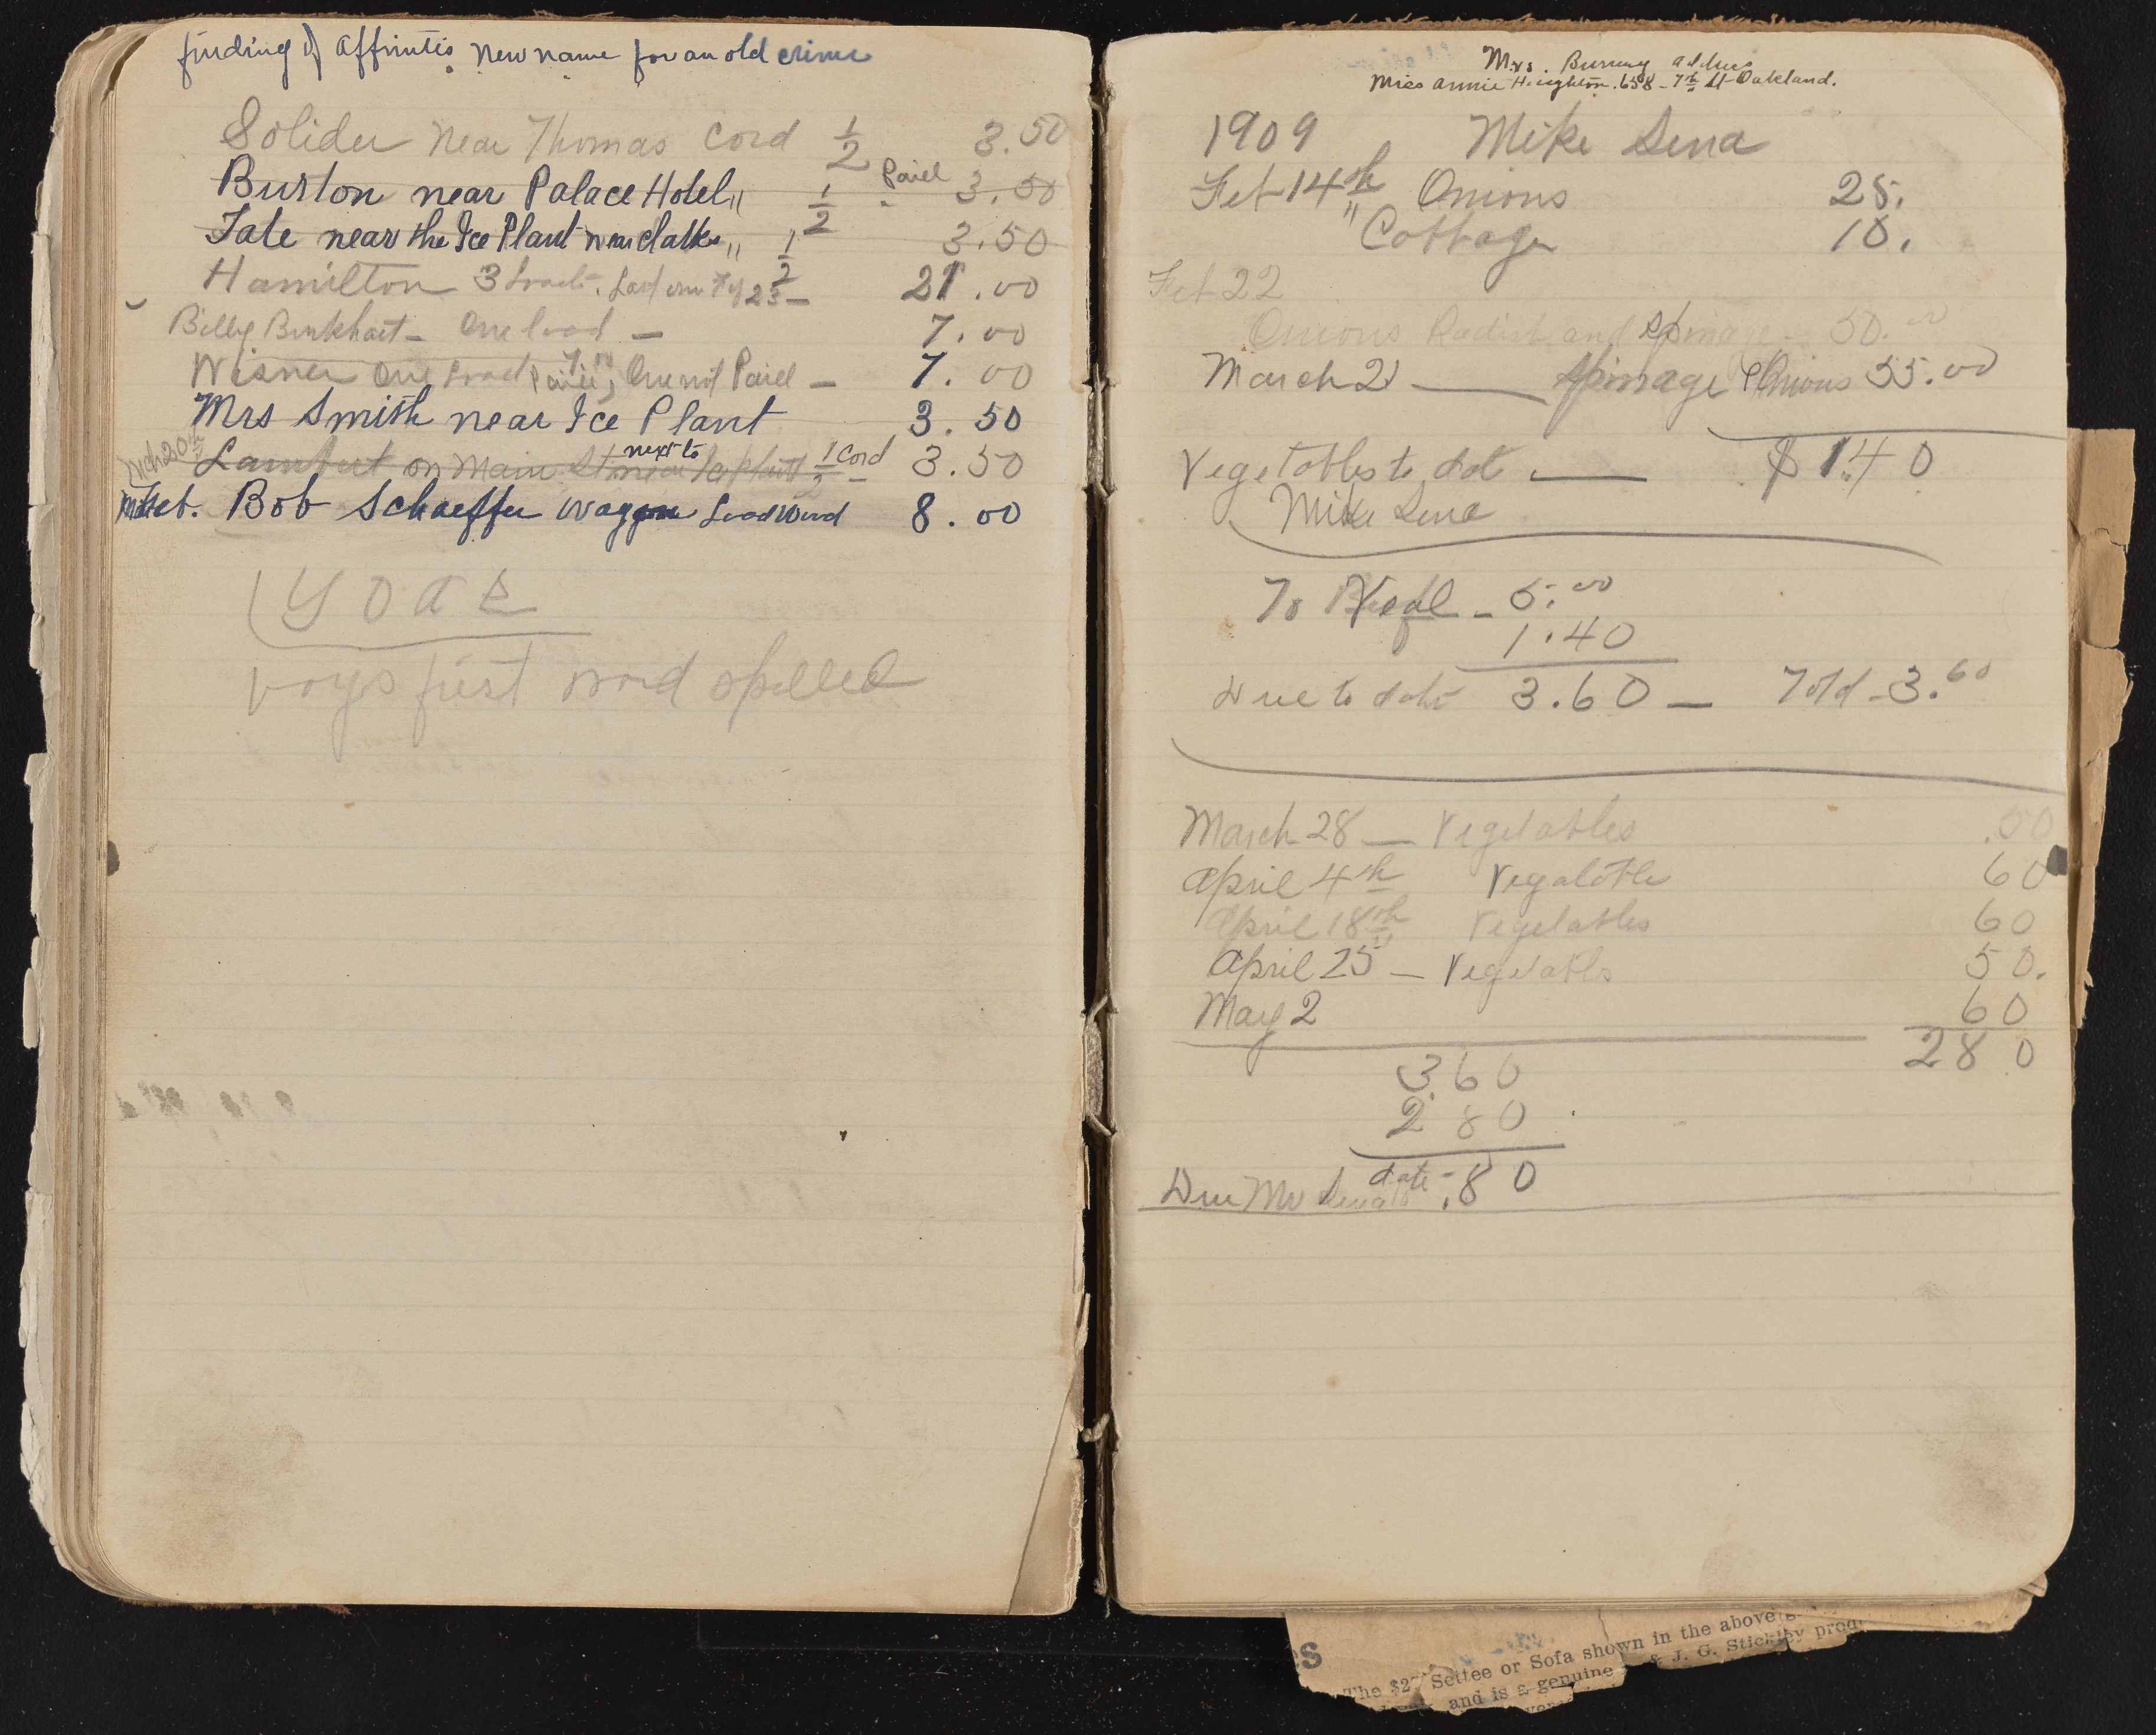 finding of affinitis new name for an old crime
Solider near Thomas Cord 1/2 3.50
Burton near Palace Hotel " 1/2 Paid 3.50
Tate near the Ice Plant near Clarks " 1/2 3.50
Hamilton 3 Loads. Last one 23 — 21.00
Billy Burkhart — One load — 7.00
Wisner One Load Paid, One not Paid — 7.00
Mrs Smith near Ice Plant 3.50
Mch 20th Lambert on Main St next to Ice Plant 1/2 Cord — 3.50
Bob Schaeffer waggon Load Wood 8.00
YOAS
voys first word spelled
Mrs. Burney address
Miss Annie Heighton. 658 - 7th St Oakland.
1909 Mike Sena
Feb 14th Onions 25.
" Cottage 10.
Feb 22
Onions Radish and Spinage — 50.00
March 21 — Spinage & Onions 55.00
Vegetables to dat — $ 1.40
Mike Sena
To Veal — 5.00
1.40
Due to date 3.60 — Told - 3.60
March 28 — Vegetables .50
April 4th Vegatable 60
April 18th Vegetables 60
April 25 — Vegetabls 50.
May 2 60
280
3.60
2 80
Due Mr Sena to date - .80
S
The $27 Settee or Sofa shown in the above
& J. G. Stickley prod
and is a genuine